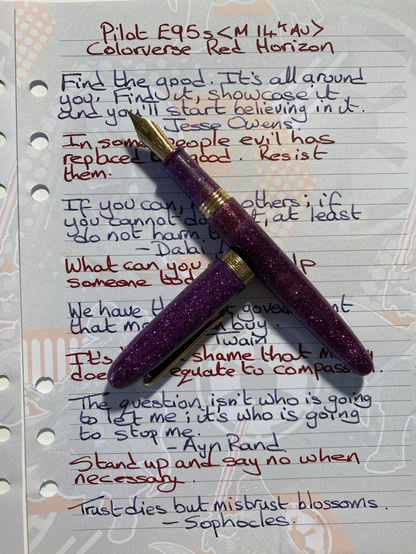 Pilot E95s <M 14k Au>
Colorverse Red Horizon
Find the good. It's all around
you. Find it, showcase it
and you'll start believing in it.
Jesse Owens
In some people evil has
replaced good. Resist
them.
If you can, others; if
you cannot do, at least
do not harm
- Dalai
What can you
someone
We have the
that mo buy
Twain
It's shame that
doe equate to compass
The question isn't who is going
to let me; it's who is going
to stop me.
- Ayn Rand
Stand up and say no when
necessary.
Trust dies but mistrust blossoms.
- Sophocles.